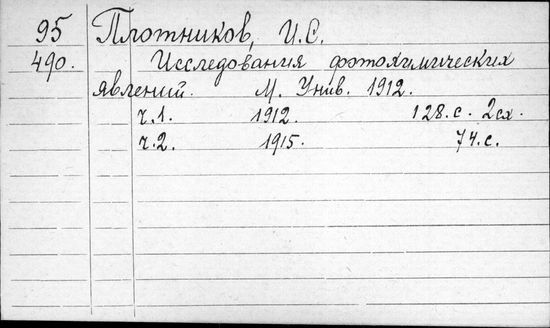 95 Плотников, И.С.
490. Исследования фотохимических
явлений. М. Унив. 1912.
ч.1. 1912. 128.с. 2сх.
ч.2. 1915. 74.с.